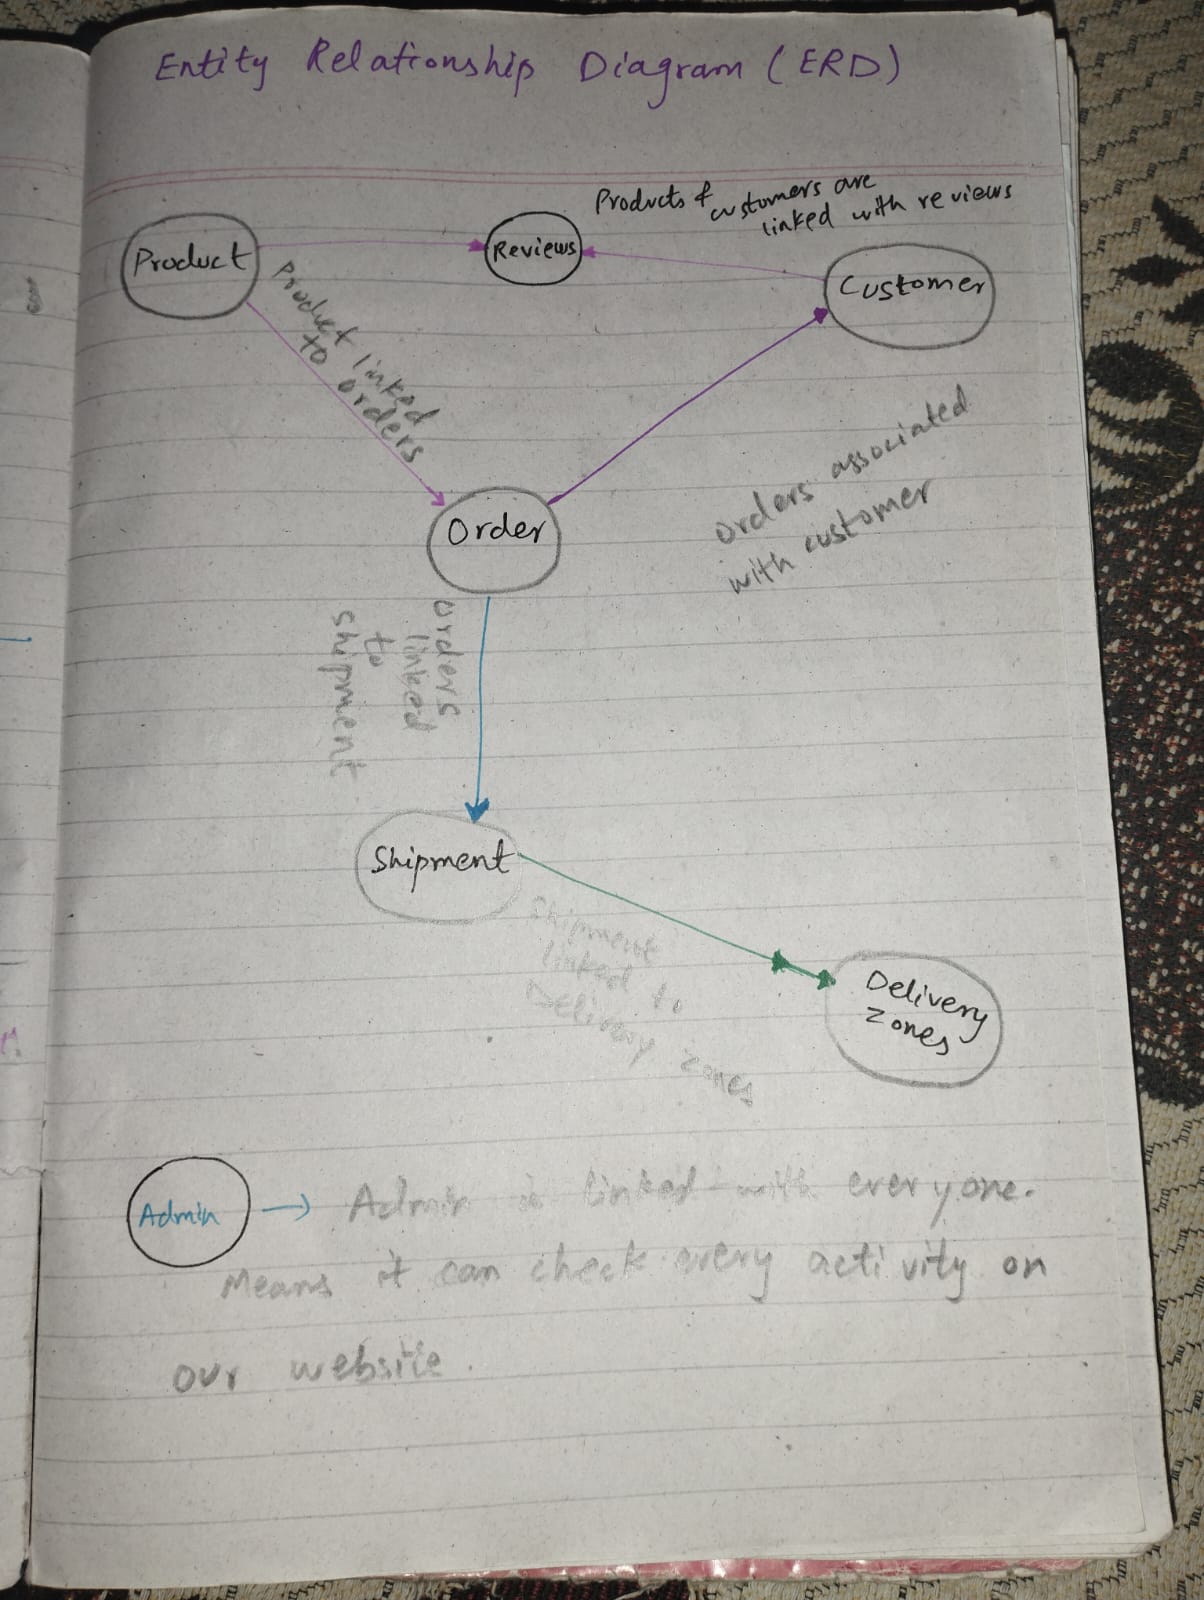 Entity Relationship Diagram (ERD)
Products & customers are
linked with reviews
Product
Reviews
Customer
Product linked
to orders
Order
Orders associated
with customer
Orders
linked
to
shipment
Shipment
Shipment
linked to
Delivery zones
Delivery
Zones
Admin
Admin is linked with everyone.
Means it can check every activity on
our website.